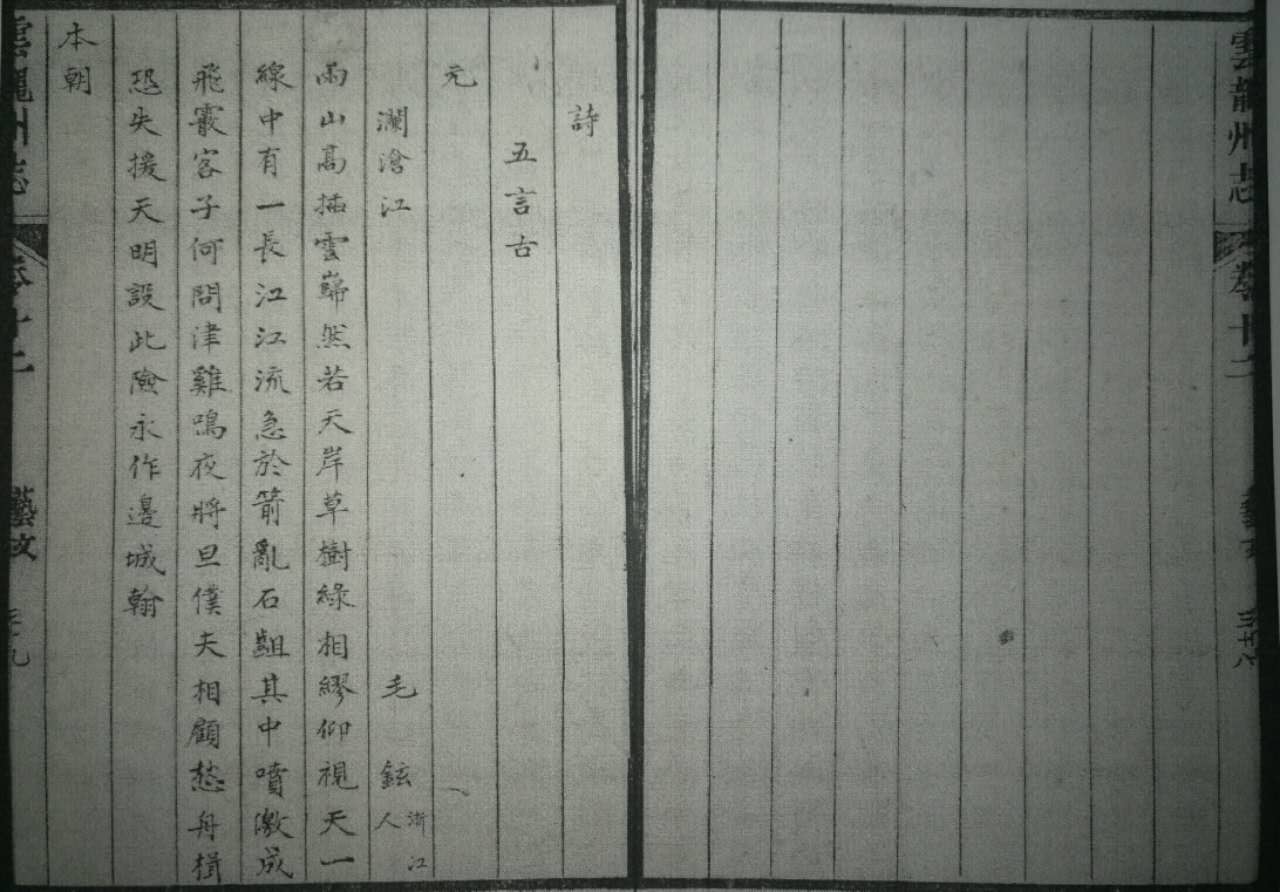 雲龍州志 卷十二 藝文 三十八
詩
五言古
元
瀾滄江 毛鋐 浙江人
兩山高插雲巋然若天岸草樹綠相繆仰視天一
線中有一長江江流急於箭亂石齟其中噴激成
飛霰客子何問津雞鳴夜將旦僕夫相顧愁舟楫
恐失援天明設此險永作邊城翰
本朝
雲龍州志 卷十二 藝文